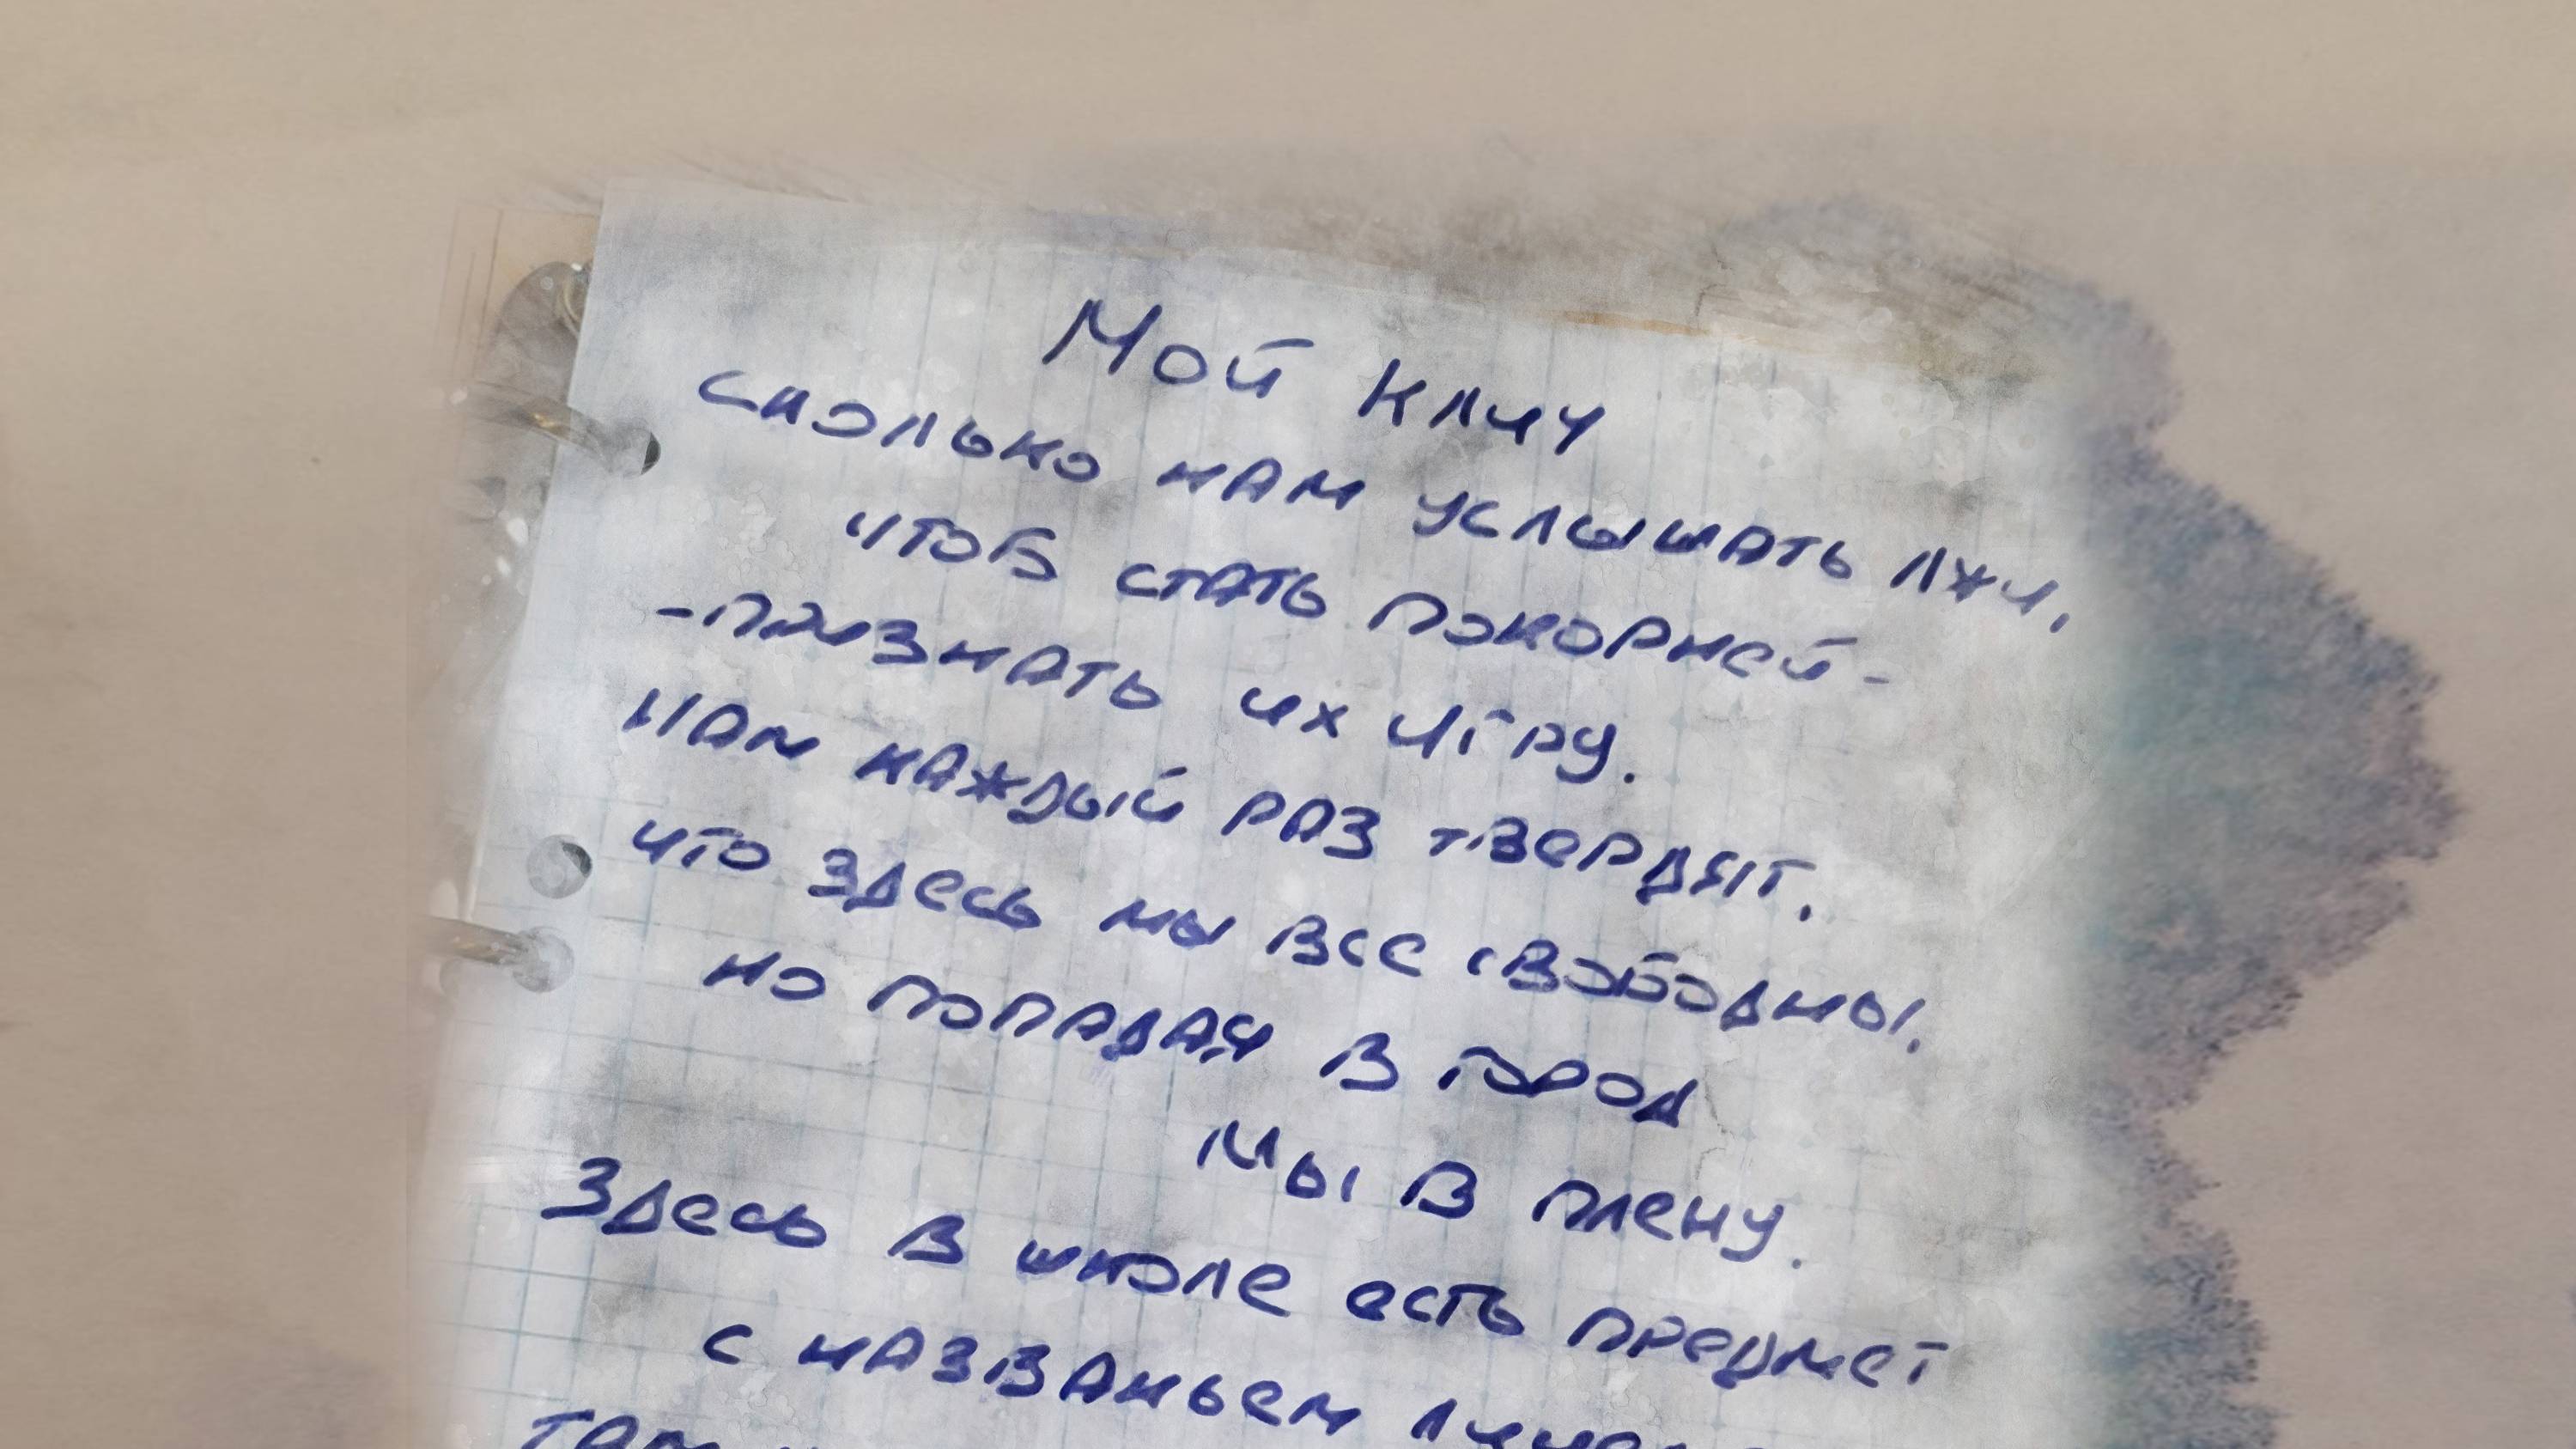 Мой клич
Сколько нам услышать лжи,
чтоб стать покорней-
-признать их игру.
Нам каждый раз твердят,
что здесь мы все свободны,
но попадая в город
мы в плену.
Здесь в школе есть предмет
с названьем